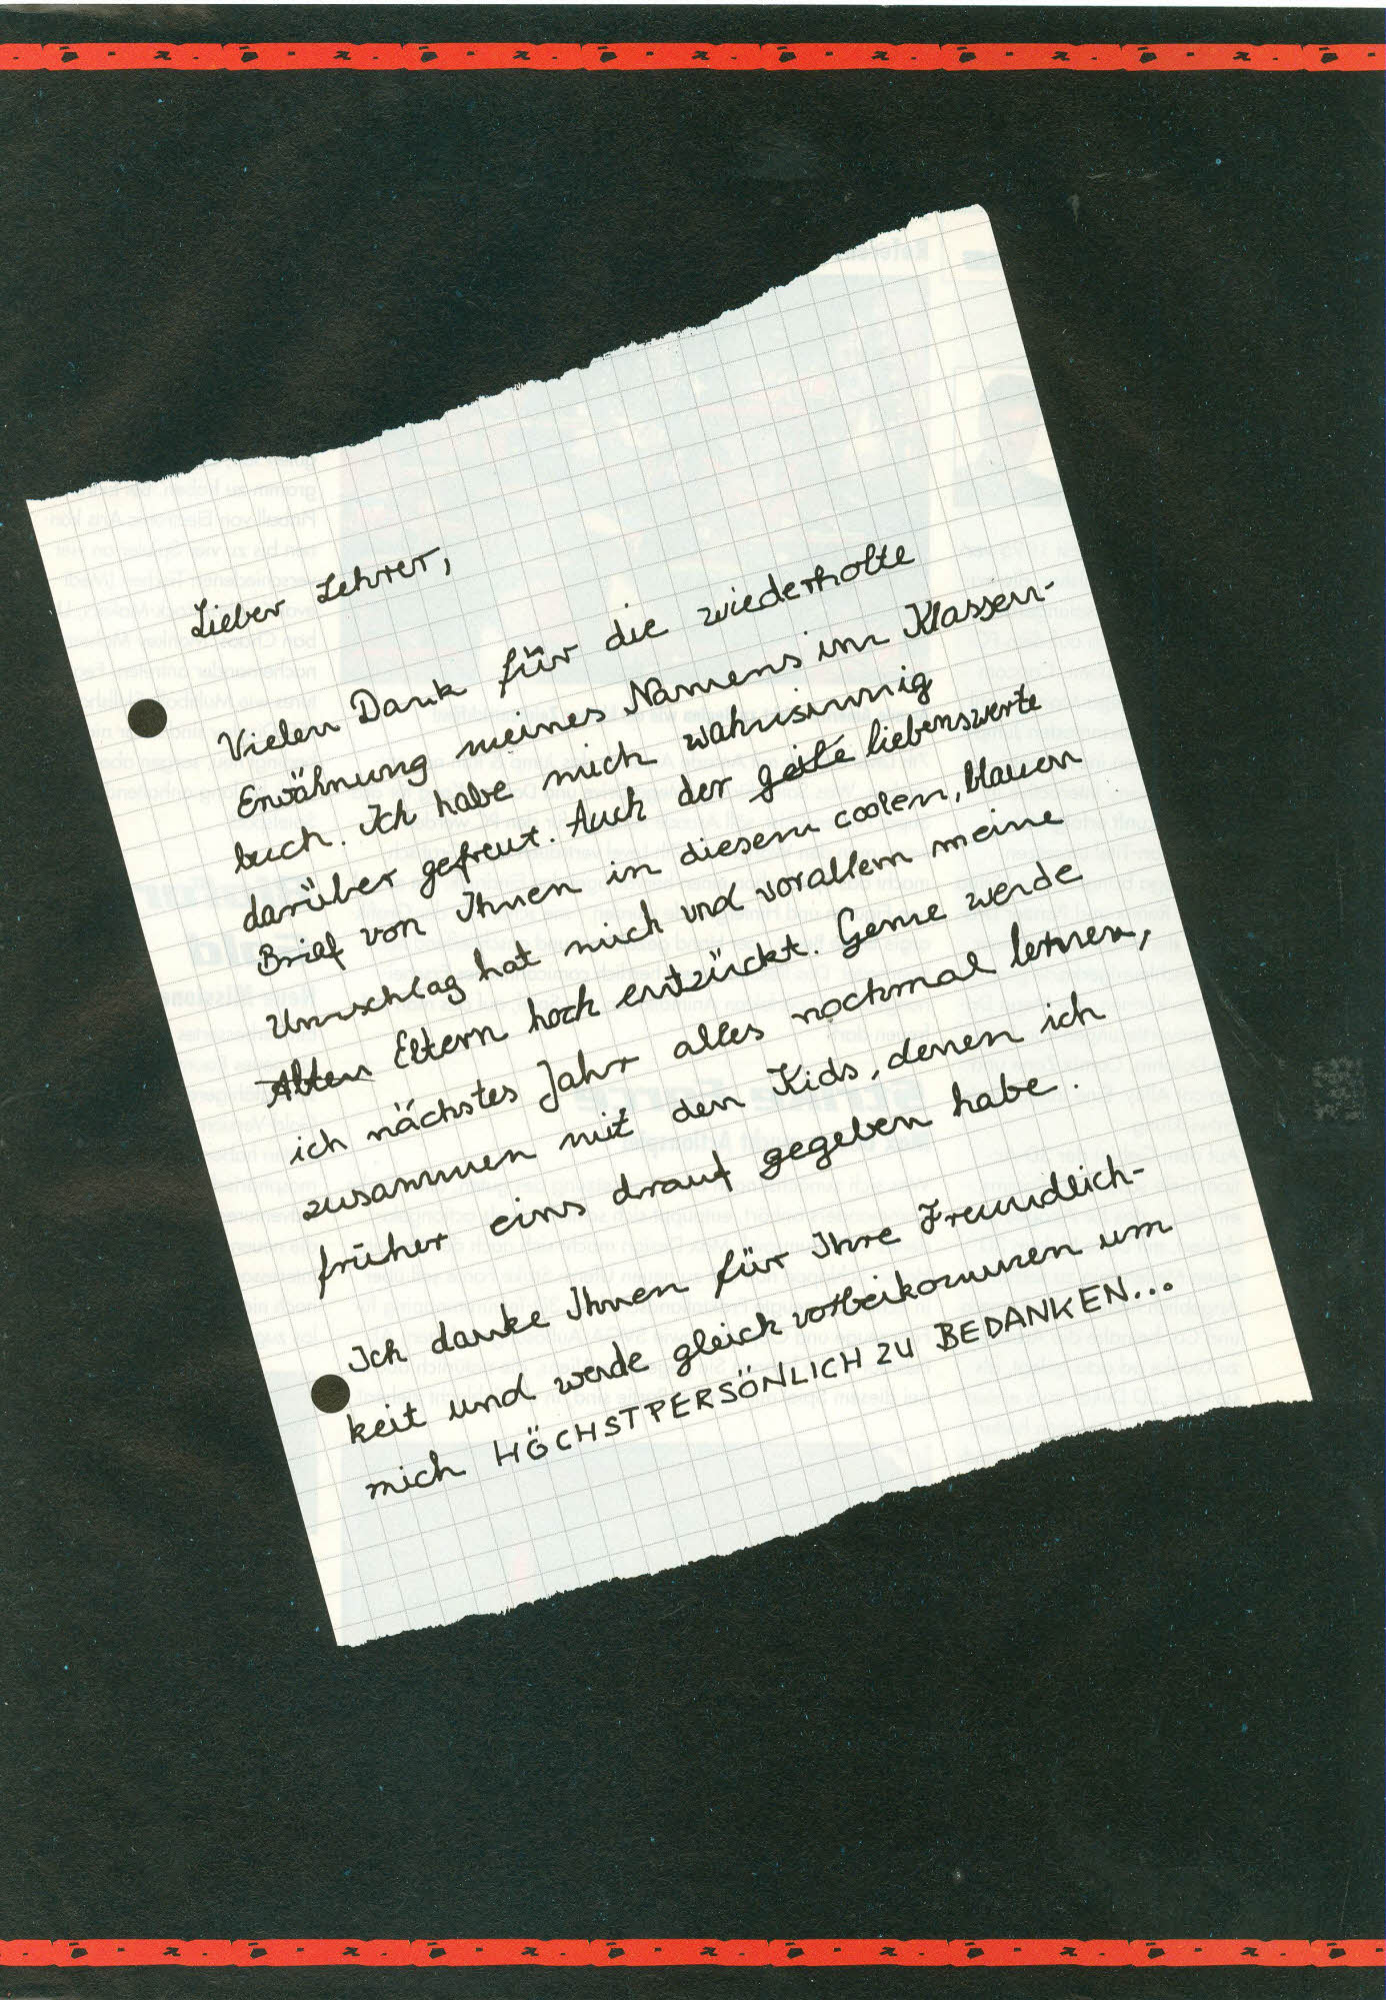 Lieber Lehrer,
Vielen Dank für die wiederholte
Erwähnung meines Namens im Klassen-
buch. Ich habe mich wahnsinnig
darüber gefreut. Auch der geile liebenswerte
Brief von Ihnen in diesem coolen, blauen
Umschlag hat mich und vorallem meine
Alten Eltern hoch entzückt. Gerne werde
ich nächstes Jahr alles nochmal lernen,
zusammen mit den Kids, denen ich
früher eins drauf gegeben habe.
Ich danke Ihnen für Ihre Freundlich-
keit und werde gleich vorbeikommen um
mich HÖCHSTPERSÖNLICH ZU BEDANKEN...